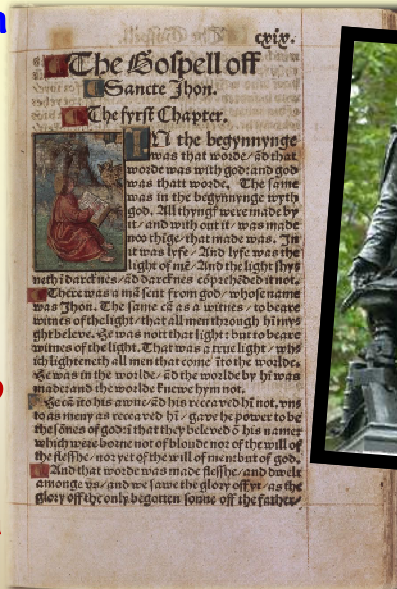 cxix.
The Gospell off
Sancte Jhon.
The fyrst Chapter.
IN the begynnynge
was that worde/ ād that
worde was with god: and god
was thatt worde. The same
was in the begynnynge wyth
god. All thyngſ were made by
it/ and with out it/ was made
noo thīge/ that made was. In
it was lyfe/ And lyfe was the
light of mē/ And the light shyn
neth ī darcknes/ ād darcknes cōprehēded it not.
There was a mā sent from god/ whose name
was Jhon. The same cā as a witnes/ to beare
witnes of the light/ that all men through hī myg
ght beleve. He was nott that light: but to beare
witnes of the light. That was a true light/ whi
ch lighteneth all men that come īto the worlde.
He was in the worlde/ ād the worlde by hī was
made: and the worlde knewe hym not.
He cā īto his awne/ ād his receaved hī not. vn
to as meny as receaved hī/ gave he power to be
the sōnes of god: ī that they beleved ō his name:
which were borne not of bloude nor of the will of
the flesshe/ nor yet of the will of men: but of god.
And that worde was made flesshe/ and dwelt
amonge vs/ and we sawe the glory off yt/ as the
glory off the only begotten sonne off the father/